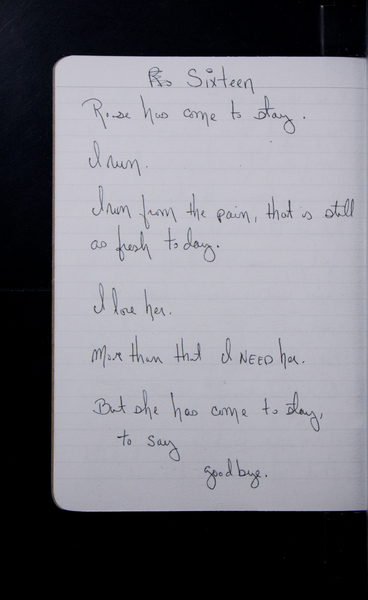 Sixteen
Rose has come to stay.
I run.
I run from the pain, that is still
as fresh today.
I love her.
More than that I NEED her.
But she has come to stay,
to say
goodbye.